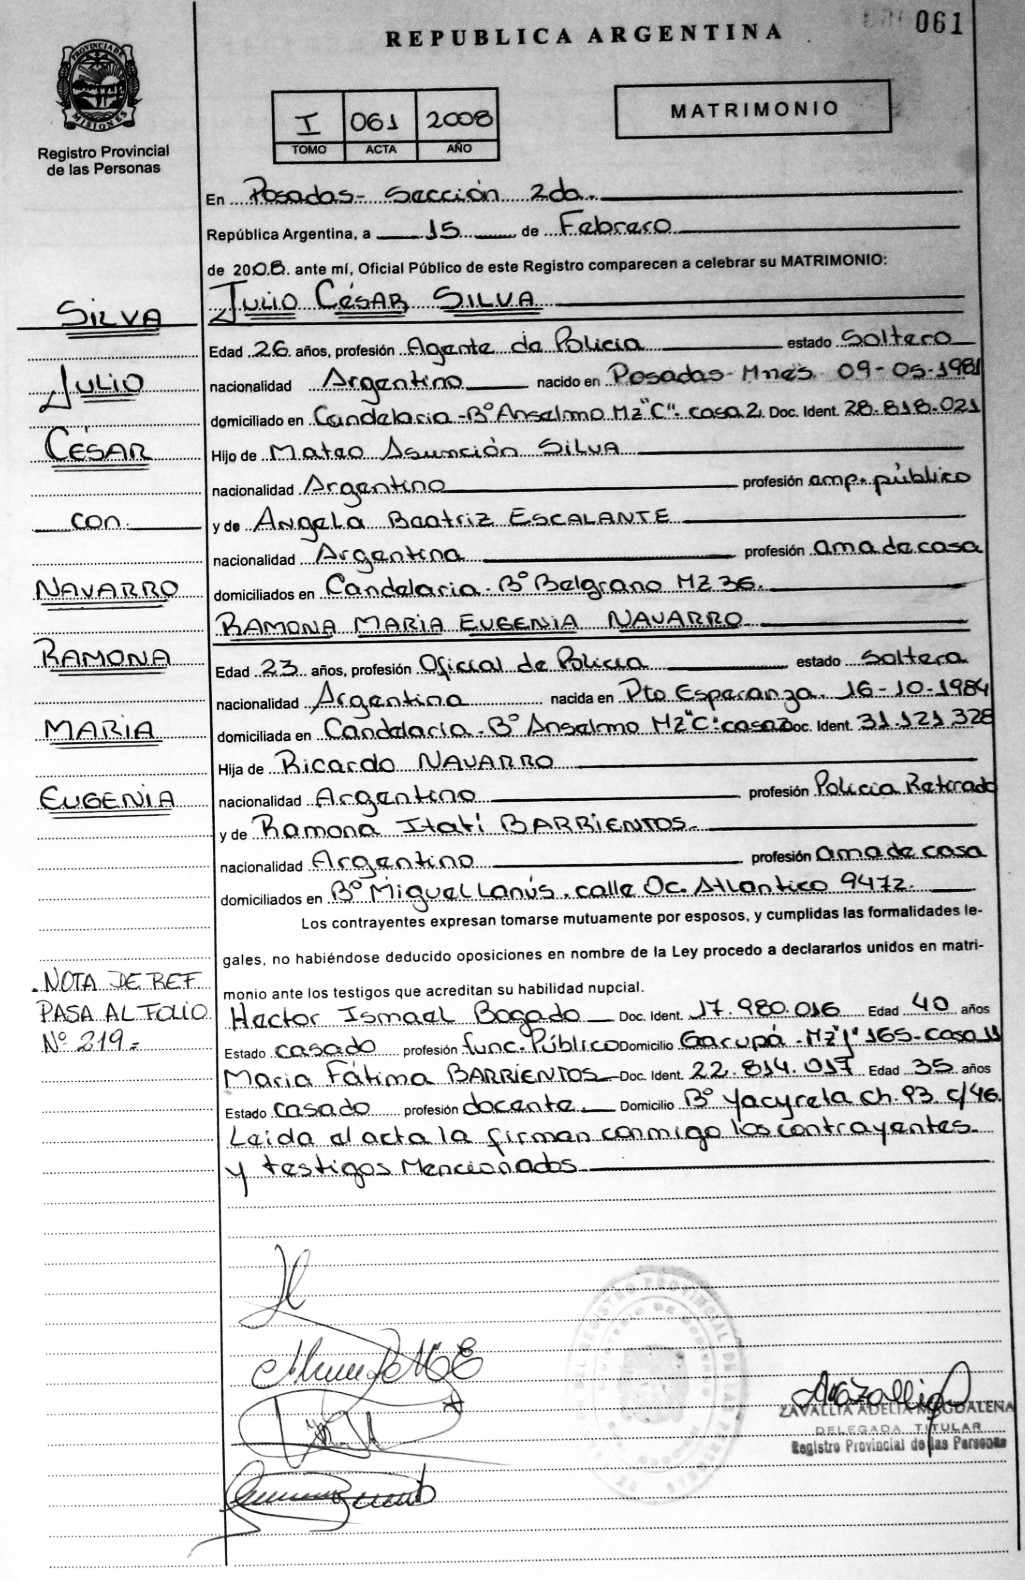 061
REPUBLICA ARGENTINA
PROVINCIA DE
MISIONES
Registro Provincial
de las Personas
I 061 2008
TOMO ACTA AÑO
MATRIMONIO
En Posadas - Sección 2da.
República Argentina, a 15 de Febrero
de 2008. ante mí, Oficial Público de este Registro comparecen a celebrar su MATRIMONIO:
JULIO CÉSAR SILVA
Edad 26 años, profesión Agente de Policia estado Soltero
nacionalidad Argentino nacido en Posadas - Mnes 09-05-1981
domiciliado en Candelaria - Bº Anselmo Mz "C". casa 2. Doc. Ident. 28.818.021
Hijo de Mateo Asunción SILVA
nacionalidad Argentino profesión emp. público
y de ANGELA Beatriz ESCALANTE
nacionalidad Argentina profesión ama de casa
domiciliados en Candelaria - Bº Belgrano Mz 36.
RAMONA MARIA EUGENIA NAVARRO
Edad 23 años, profesión Oficial de Policia estado soltera
nacionalidad Argentina nacida en Pto Esperanza. 16-10-1984
domiciliada en Candelaria - Bº Anselmo Mz "C" casa 2 Doc. Ident. 31.121.328
Hija de Ricardo NAVARRO
nacionalidad Argentino profesión Policia Retirado
y de Ramona Itatí BARRIENTOS.
nacionalidad Argentino profesión ama de casa
domiciliados en Bº Miguel Lanús. calle Oc. Atlantico 9472.
Los contrayentes expresan tomarse mutuamente por esposos, y cumplidas las formalidades le-
gales, no habiéndose deducido oposiciones en nombre de la Ley procedo a declararlos unidos en matri-
monio ante los testigos que acreditan su habilidad nupcial.
Hector Ismael Bogado Doc. Ident. 17.980.016 Edad 40 años
Estado casado profesión func. Público Domicilio Garupá - Mz "J" 165 - casa 11
Maria Fátima BARRIENTOS Doc. Ident. 22.814.017 Edad 35 años
Estado casado profesión docente Domicilio Bº Yacyreta ch. 93 c/46.
Leida el acta la firman conmigo los contrayentes
y testigos Mencionados
SILVA
JULIO
CÉSAR
con
NAVARRO
RAMONA
MARIA
EUGENIA
NOTA DE REF.
PASA AL FOLIO
Nº 219=
ZAVALLIA ADELIA MAGDALENA
DELEGADA TITULAR
Registro Provincial de las Personas